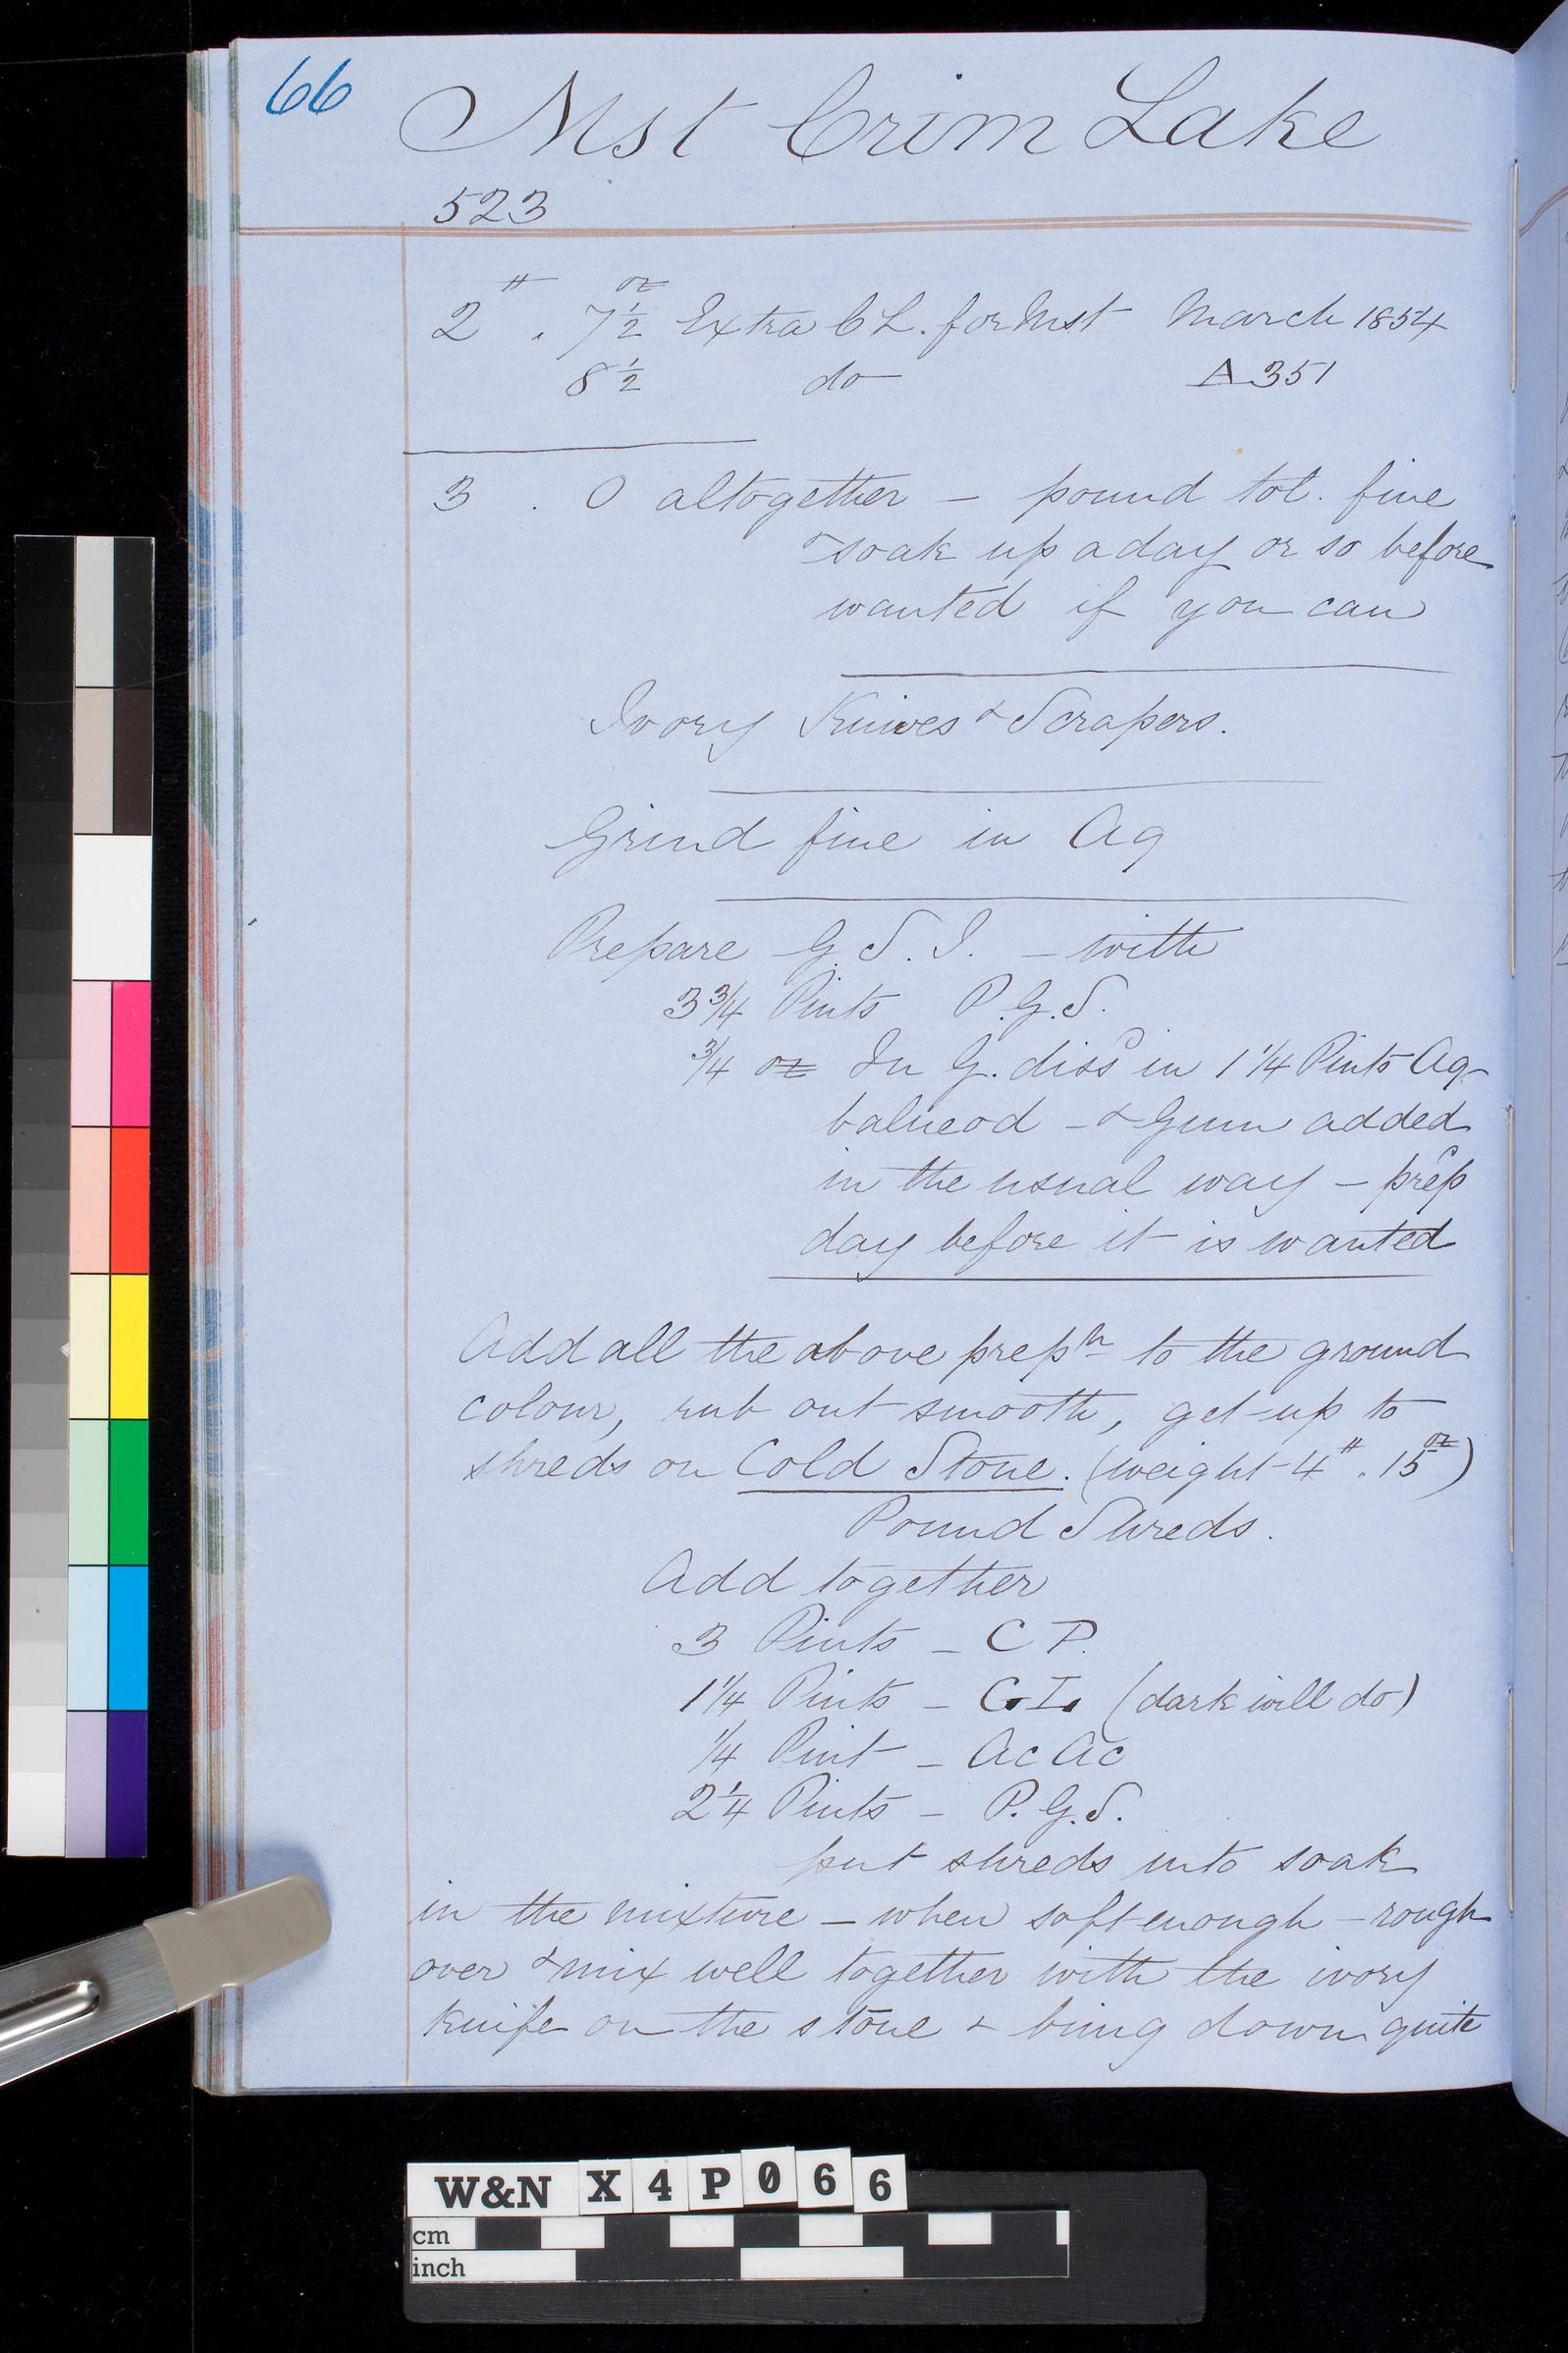 66
Mst Crim Lake
523
2 # . 7½ oz Extra C L. for Mst March 1854
8½ do A 351
3 . 0 altogether – pound tol. fine
& soak up a day or so before
wanted if you can
Ivory Knives & Scrapers.
Grind fine in Aq
Prepare G. S. I. – with
3¾ Pints P. G. S.
¾ oz In G. dissd in 1¼ Pints Aq
balneod – & Gum added
in the usual way – prepd
day before it is wanted
Add all the above prepn to the ground
colour, rub out smooth, get up to
shreds on Cold Stone. (weight 4 # . 15 oz)
Pound Shreds.
Add together
3 Pints – C P.
1¼ Pints – G L. (dark will do)
¼ Pint – Ac Ac
2¼ Pints – P. G. S.
put shreds into soak
in the mixture – when soft enough – rough
over & mix well together with the ivory
knife on the stone & bring down quite
W&N X4P066
cm
inch